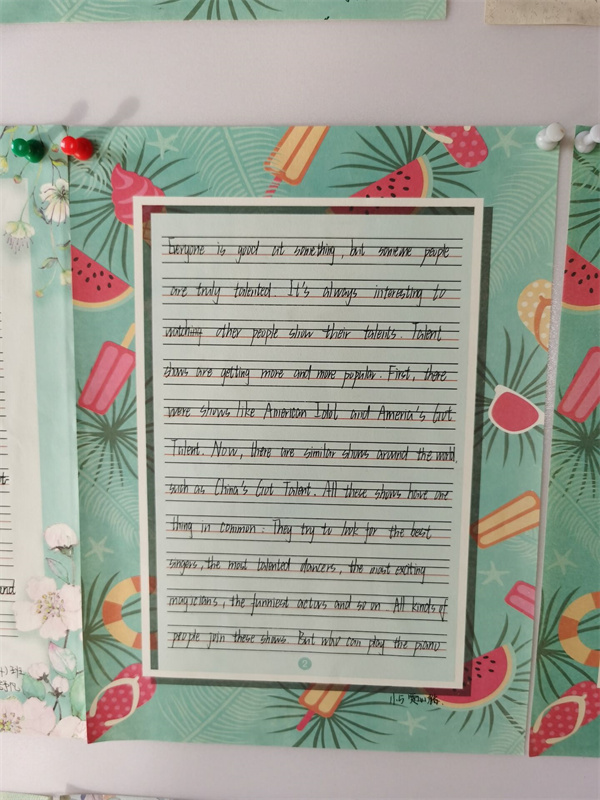 Everyone is good at something, but some me people
are truly talented. It's always interesting to
watching other people show their talents. Talent
shows are getting more and more popular. First, there
were shows like American Idol and Ameria's Got
Talent. Now, there are similar shows around the world,
such as China's Got Talent. All these shows have one
thing in common: They try to look for the best
singers, the most talented dancers, the most exciting
magicians, the funniest actors and so on. All kinds of
people join these shows. But who can play the piano
2